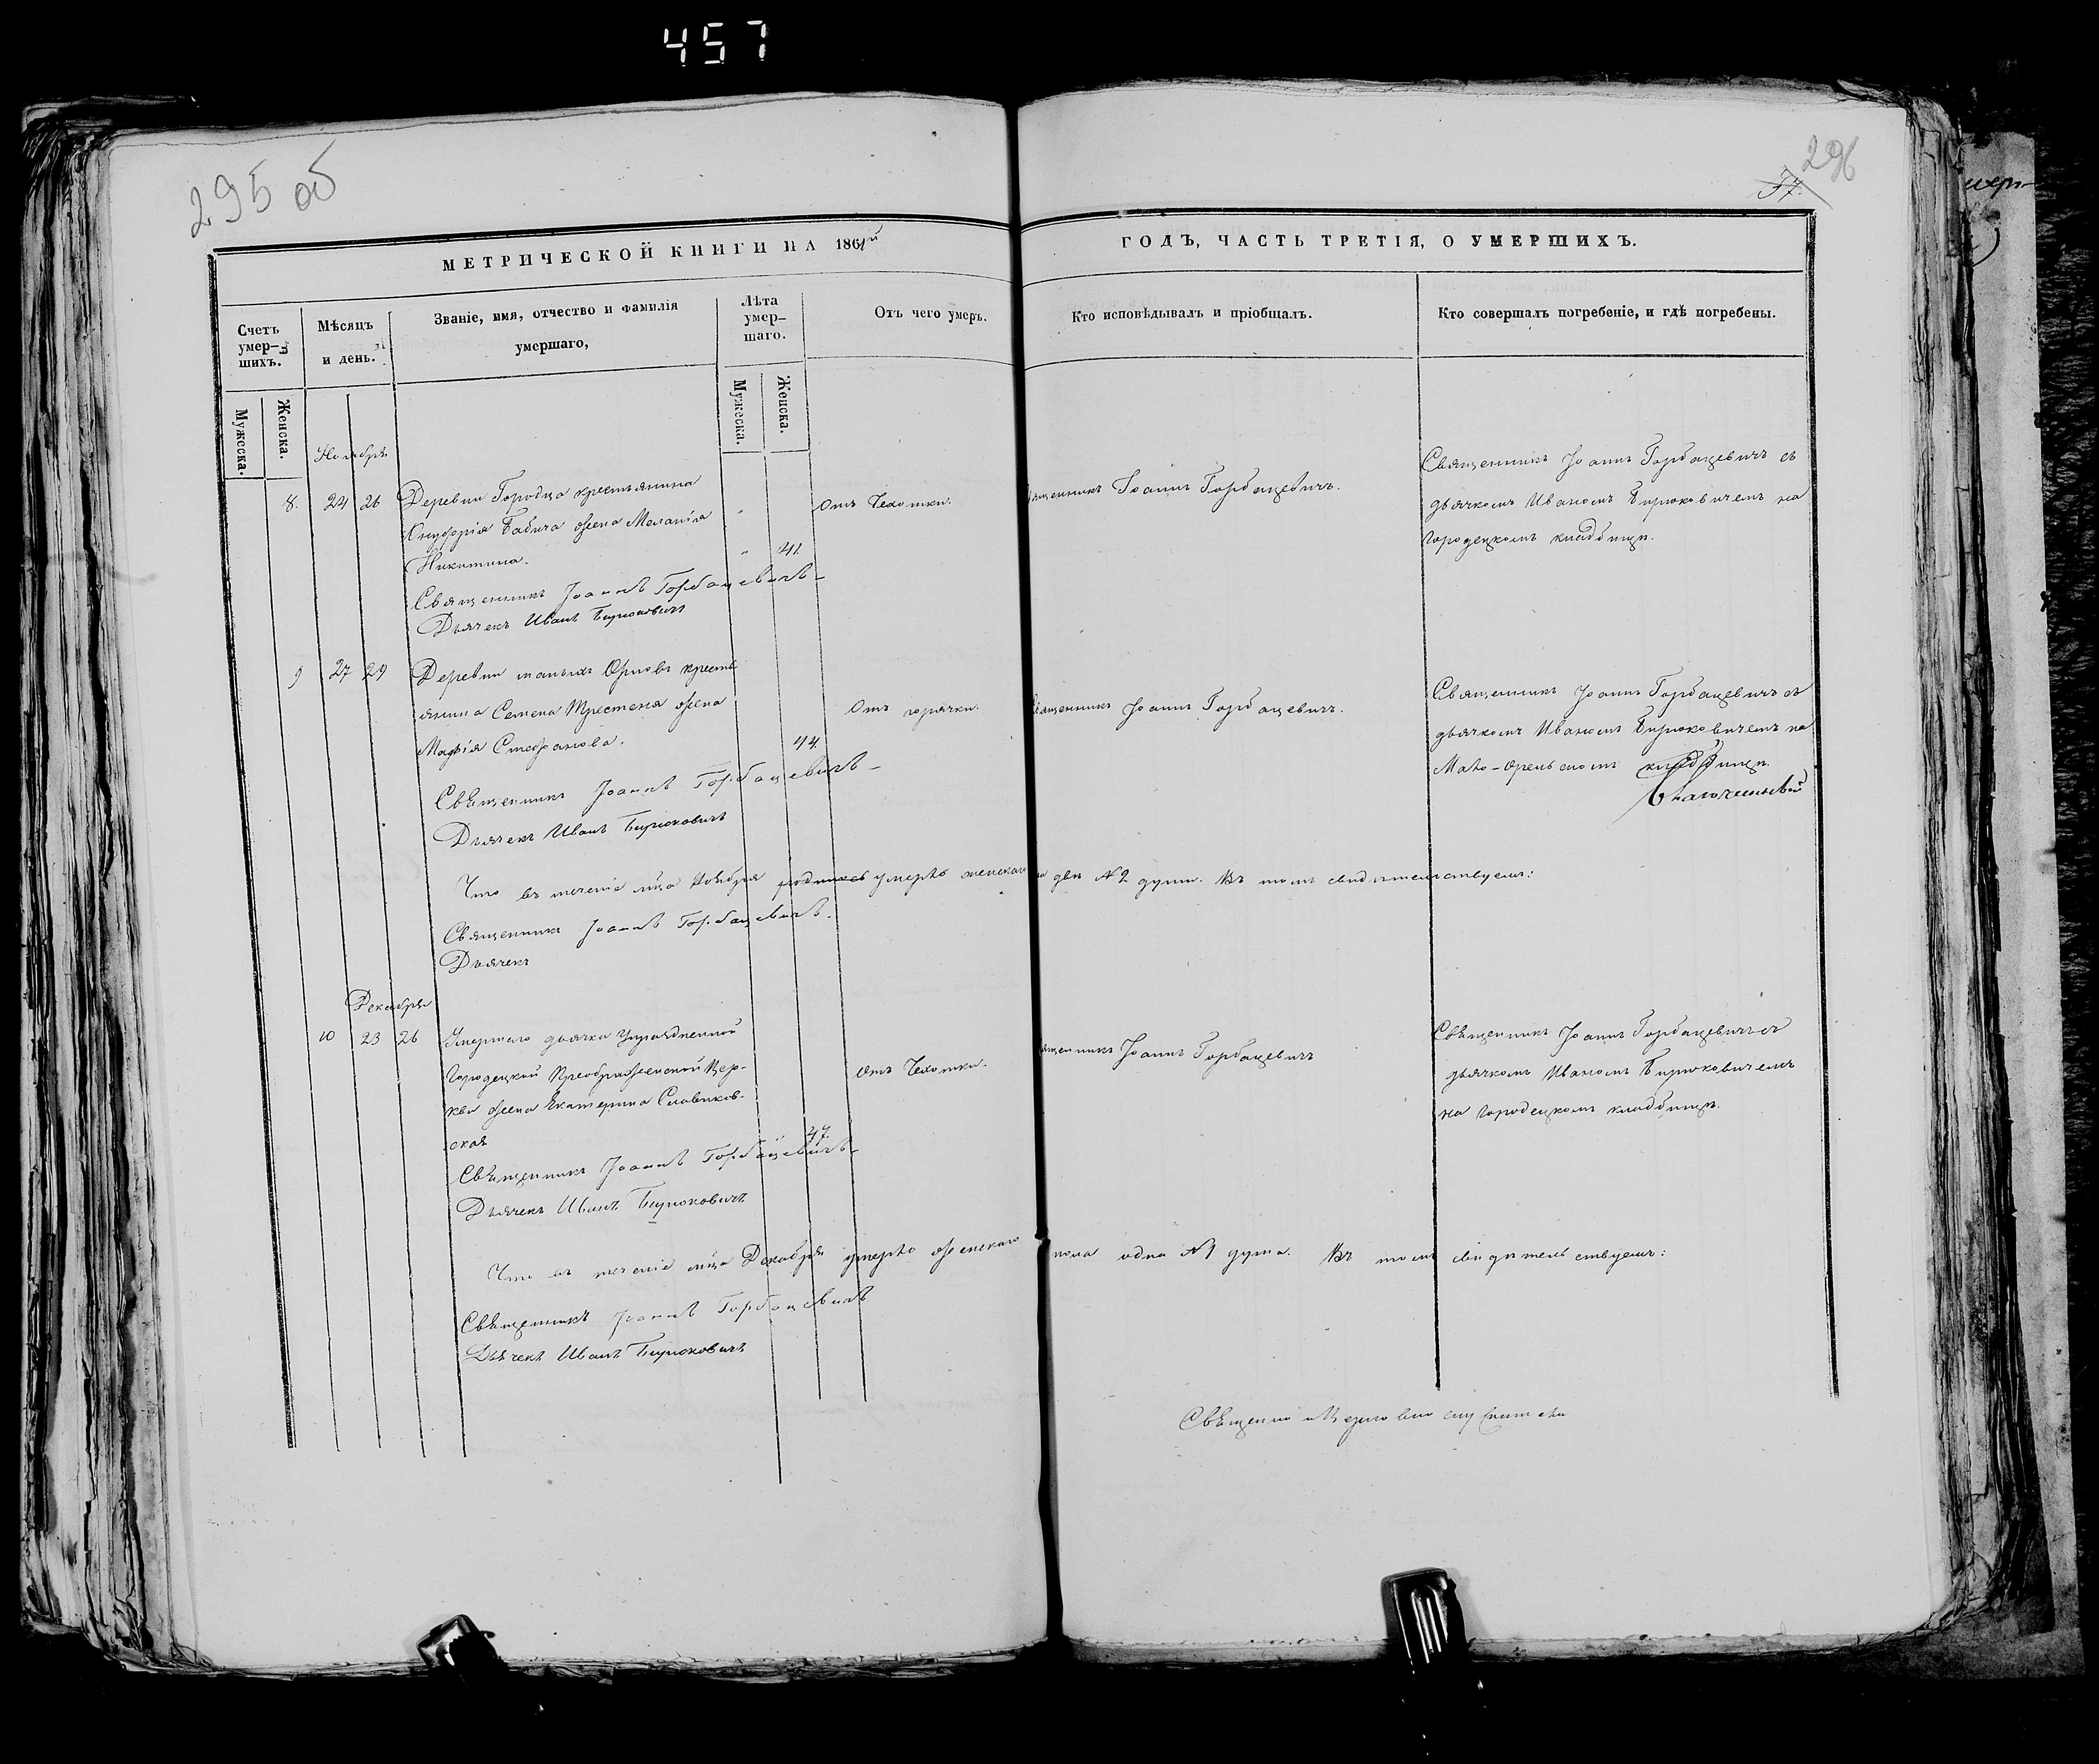 457
295 об
296
37.
МЕТРИЧЕСКОЙ КНИГИ НА 1861й
ГОДЪ, ЧАСТЬ ТРЕТІЯ, О УМЕРШИХЪ.
Счетъ умер-
шихъ.
Мѣсяцъ
и день.
Званіе, имя, отчество и фамилія
умершаго,
Лѣта
умер-
шаго.
Отъ чего умеръ.
Кто исповѣдывалъ и пріобщалъ.
Кто совершалъ погребеніе, и гдѣ погребены.
Мужеска.
Женска.
Мужеска.
Женска.
Ноября
8. 24 26
Деревни Городца крестьянина
Онуфрія Бабича жена Меланія
Никитина.
41.
Отъ Чехотки.
Священникъ Іоаннъ Горбацевичъ.
Священникъ Іоаннъ Горбацевичъ съ
дьячкомъ Иваномъ Бирюковичемъ на
Городецкомъ кладбищѣ.
Священникъ Іоаннъ Горбацевичъ
Дьячекъ Иванъ Бирюковичъ
9 27 29
Деревни малыхъ Орловъ кресть
янина Семена жена
Марія Стефанова.
44.
Отъ горячки.
Священникъ Іоаннъ Горбацевичъ.
Священникъ Іоаннъ Горбацевичъ съ
дьячкомъ Иваномъ Бирюковичемъ на
Мало-Орельскомъ кладбищѣ.
Священникъ Іоаннъ Горбацевичъ
Дьячекъ Иванъ Бирюковичъ
Что въ теченіе м҃ца Ноября родилось умерло женскаго двѣ №2 души. Въ томъ свидѣтельствуемъ:
Священникъ Іоаннъ Горбацевичъ.
Дьячекъ
Декабря
10 23 26
Умершаго дьячка Упраздненной
Городецкой Преображенской Цер-
кви жена Екатерина Славиков-
ская
47.
Отъ Чехотки.
Священникъ Іоаннъ Горбацевичъ
Священникъ Іоаннъ Горбацевичъ съ
дьячкомъ Иваномъ Бирюковичемъ
на Городецкомъ кладбищѣ.
Священникъ Іоаннъ Горбацевичъ
Дьячекъ Иванъ Бирюковичъ
Что въ теченіе м҃ца Декабря умерло женскаго пола одна №1 душа. Въ томъ свидѣтельствуемъ:
Священникъ Іоаннъ Горбацевичъ
Дьячекъ Иванъ Бирюковичъ